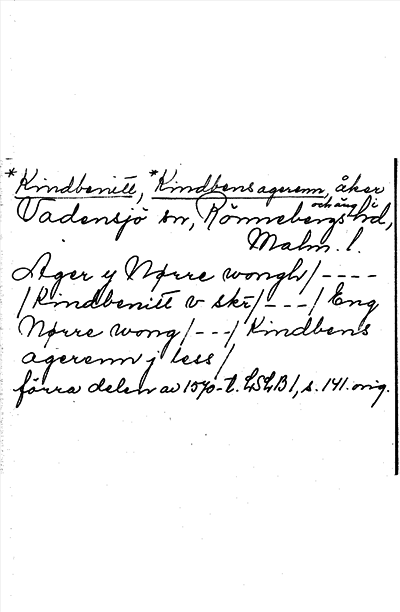 *Kindbenitt, *Kindbens agerenn, åker
och äng i
Vadensjö sn, Rönnebergs hd,
Malm. l.
Ager y Nørre wongh/----
/Kindbenitt v skr/---/ Eng
Nørre wong/---/ Kindbens
agerenn j less/
förra delen av 1570-t. LSLB1, s. 141. orig.